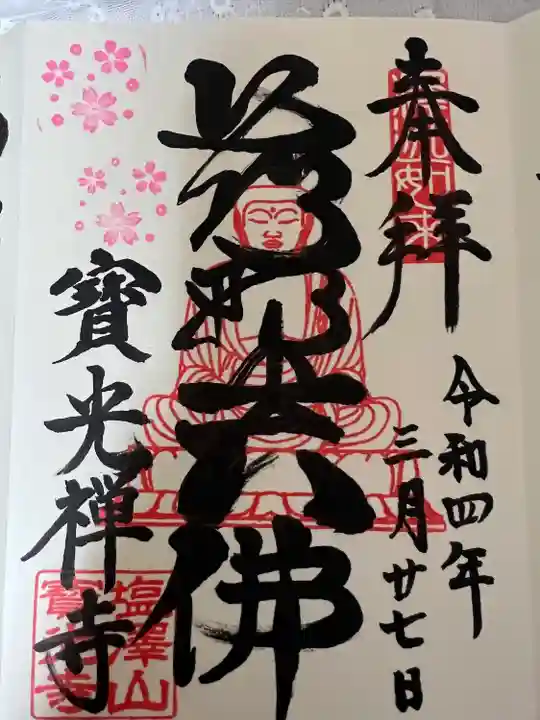 奉拝
令和四年
三月廿七日
鹿野大佛
寶光禅寺
塩澤山
寶光寺